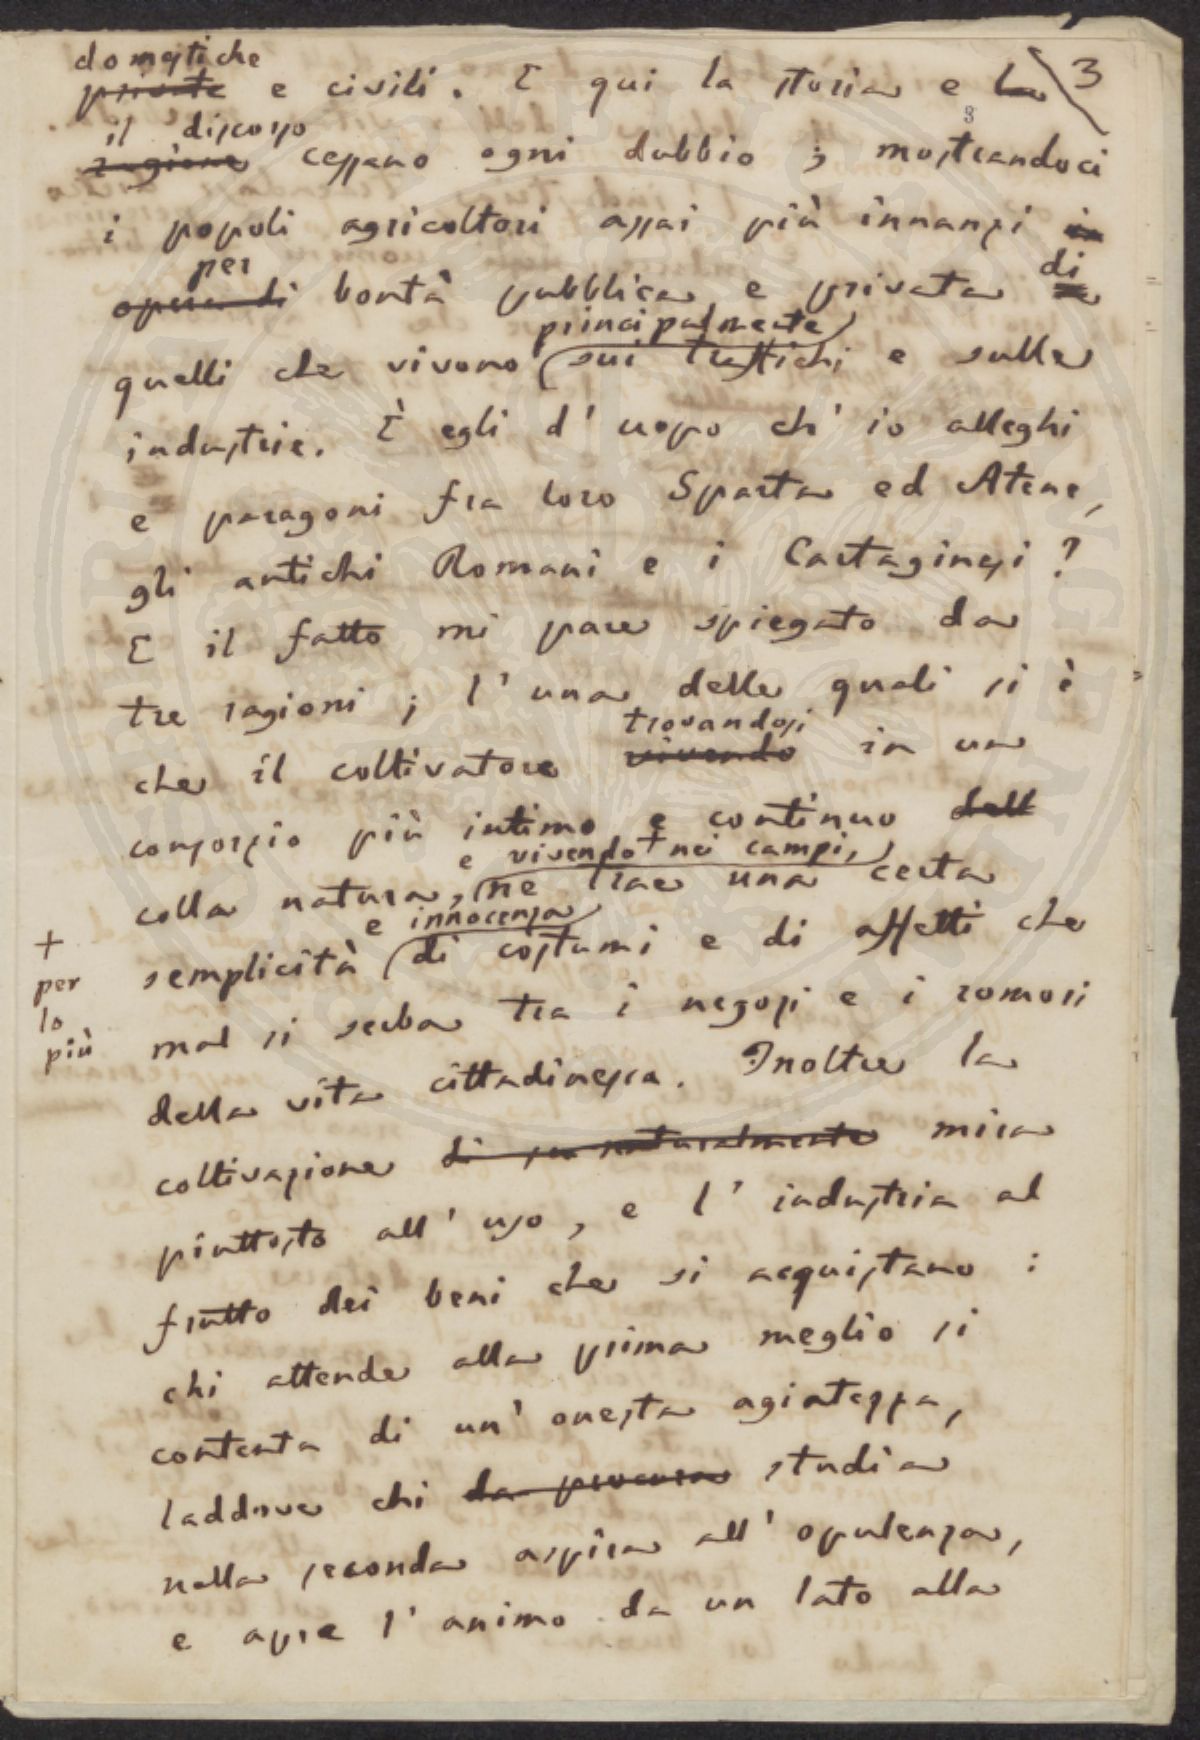 domestiche
private e civili. E qui la storia e la 3
8
il discorso
ragione cessano ogni dubbio; mostrandoci
i popoli agricoltori assai più innanzi in
per di
opera di bontà pubblica e privata
principalmente
quelli che vivono sui traffichi e sulle
industrie. È egli d'uopo ch'io alleghi
e paragoni fra loro Sparta ed Atene,
gli antichi Romani e i Cartaginesi?
E il fatto mi pare spiegato da
tre ragioni; l'una delle quali si è
trovandosi
che il coltivatore vivendo in un
consorzio più intimo e continuo dell
e vivendo + nei campi,
colla natura, ne trae una certa
e innocenza
semplicità di costumi e di affetti che
+
per
lo
più
mal si serba tra i negozi e i romori
della vita cittadinesca. Inoltre la
coltivazione di su naturalmente mira
piuttosto all'uso, e l'industria al
frutto dei beni che si acquistano:
chi attende alla prima meglio si
contenta di un'onesta agiatezza,
laddove chi da procura studia
nella seconda aspira all'opulenza,
e apre l'animo da un lato alla